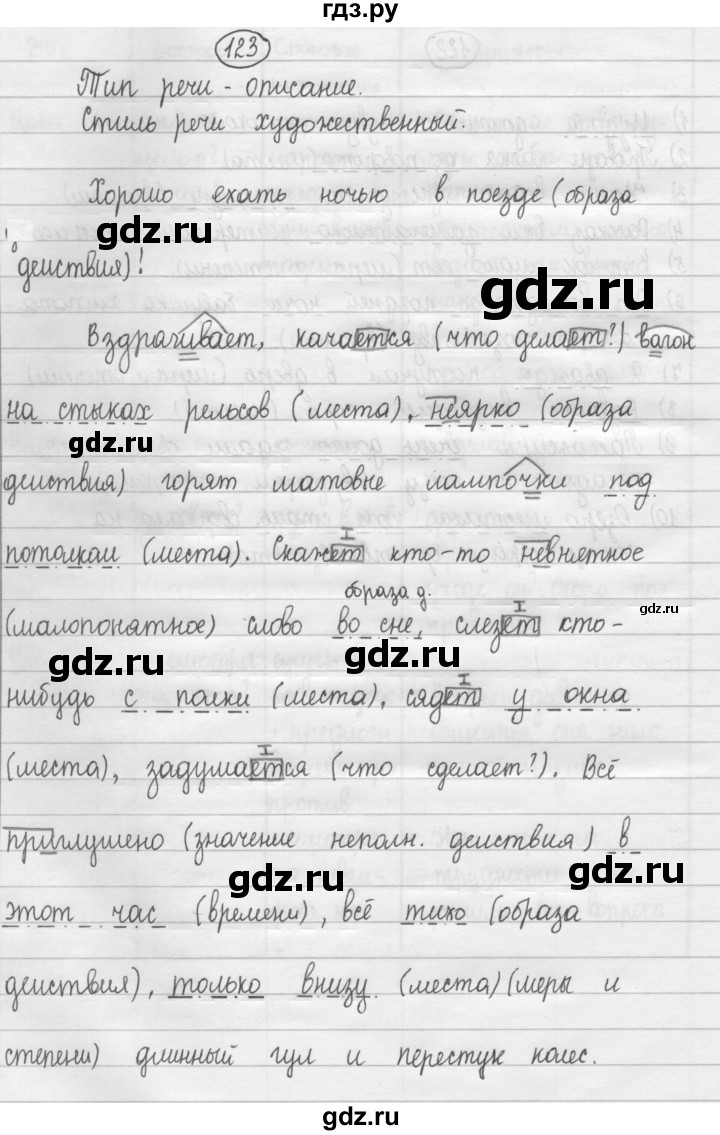 гдз.ру
123
Тип речи - описание.
Стиль речи художественный.
Хорошо ехать ночью в поезде (образа
gdz.ru
действия)!
gdz.ru
Вздрагивает, качается (что делает?) вагон
на стыках рельсов (места), неярко (образа
gdz.ru
gdz.ru
действия) горят матовые лампочки под
I
потолкам (места). Скажет кто-то невнятное
образа д.
I
gdz.ru
(малопонятное) слово во сне, слезет кто-
gdz.ru
gdz.ru
I
нибудь с полки (места), сядет у окна
I
(места), задумается (что сделает?). Всё
приглушено (значение неполн. действия) в
gdz.ru
gdz.ru
этот час (времени), всё тихо (образа
действия), только внизу (места) (меры и
степени) длинный гул и перестук колес.
gdz.ru